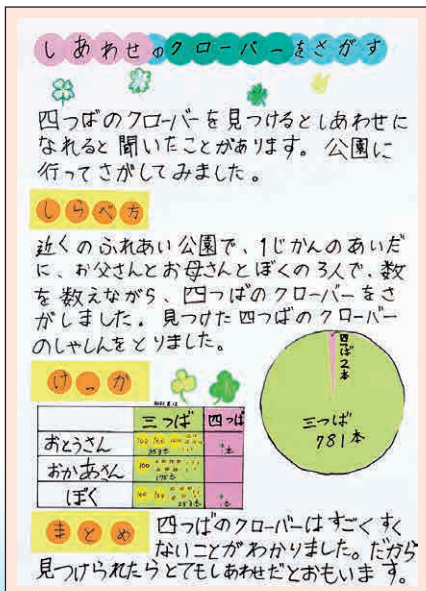 しあわせのクローバーをさがす
四つばのクローバーを見つけるとしあわせに
なれると聞いたことがあります。公園に
行ってさがしてみました。
しらべ方
近くのふれあい公園で、1じかんのあいだ
に、お父さんとお母さんとぼくの3人で、数
を数えながら、四つばのクローバーをさ
がしました。見つけた四つばのクローバー
のしゃしんをとりました。
けっか
三つば 四つば
おとうさん
おかあさん
ぼく
四つば2本
三つば
781本
まとめ
四つばのクローバーはすごくすく
ないことがわかりました。だから
見つけられたらとてもしあわせだとおもいます。